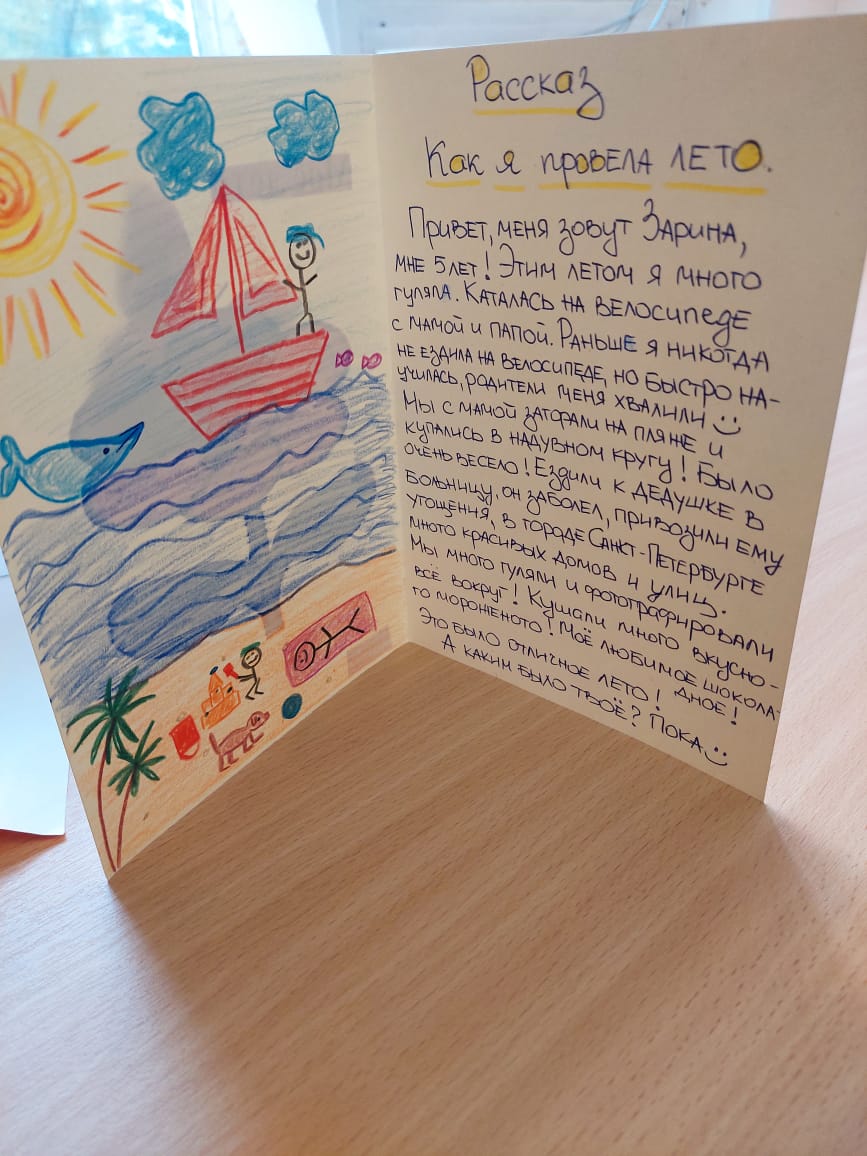 Рассказ
Как я провела лето.
Привет, меня зовут Зарина,
мне 5 лет! Этим летом я много
гуляла. Каталась на велосипеде
с мамой и папой. Раньше я никогда
не ездила на велосипеде, но быстро на-
училась, родители меня хвалили :)
Мы с мамой загорали на пляже и
купались в надувном кругу! Было
очень весело! Ездили к дедушке в
больницу, он заболел, привозили ему
угощения, в городе Санкт-Петербурге
много красивых домов и улиц.
Мы много гуляли и фотографировали
всё вокруг! Кушали много вкусно-
го мороженого! Моё любимое шокола-
дное!
Это было отличное лето!
А каким было твоё? Пока :)